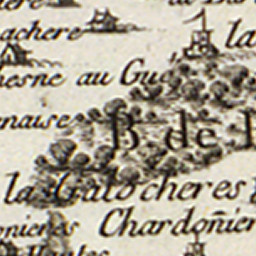 achere
la
esne au Gue
naise
B de
la Galocheres
onieres Chardoñier